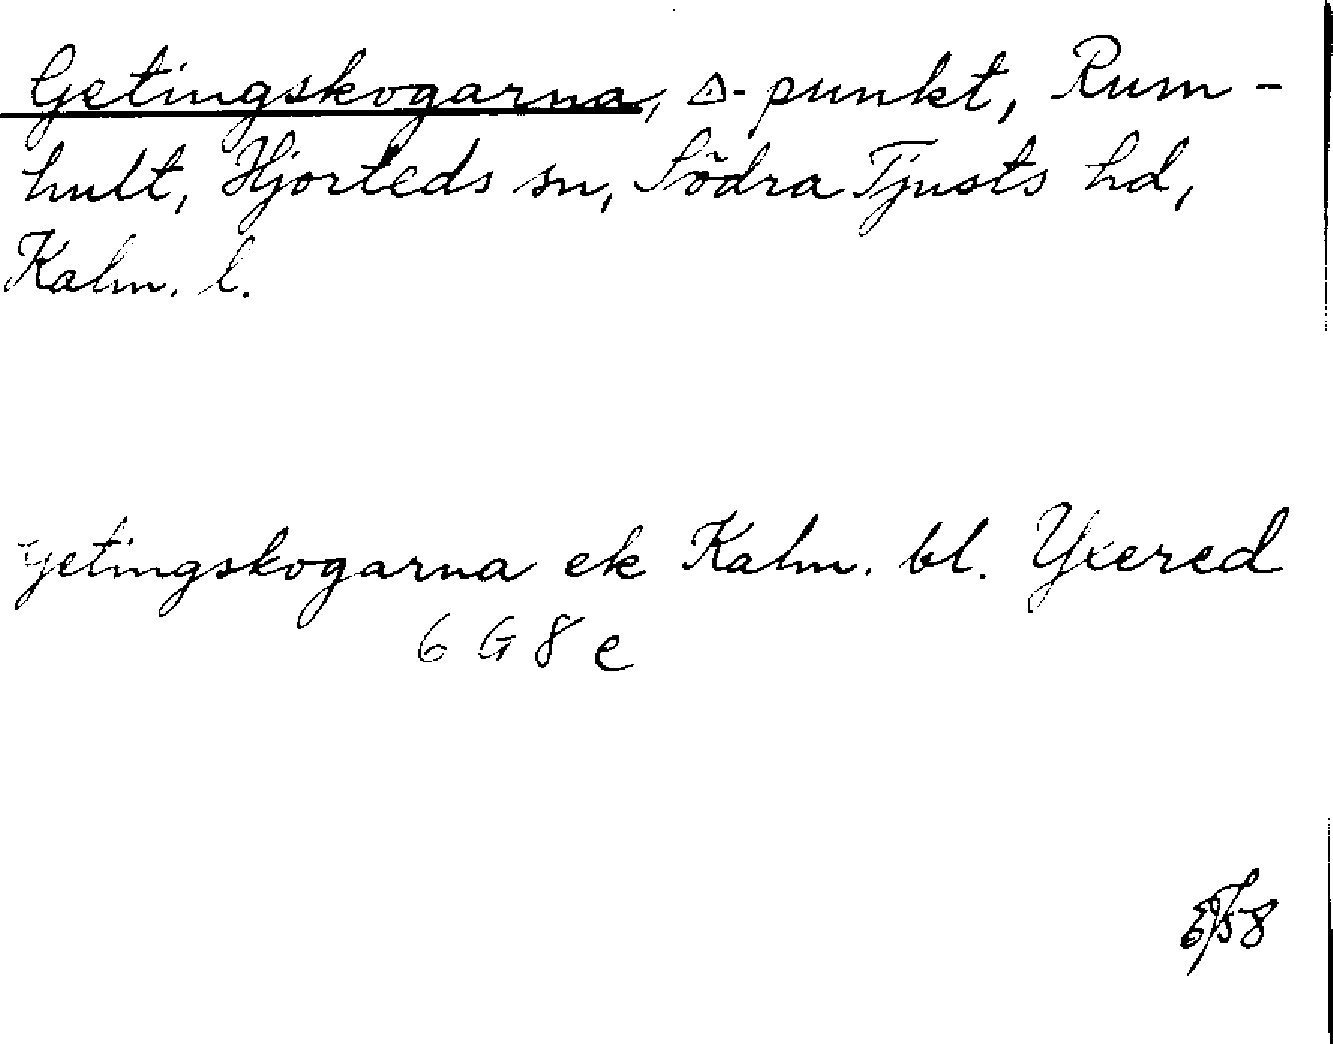 Getingskogarna, △-punkt, Rum-
hult, Hjorteds sn, Södra Tjusts hd,
Kalm. l.
Getingskogarna ek Kalm. bl. Yxered
6 G 8 e